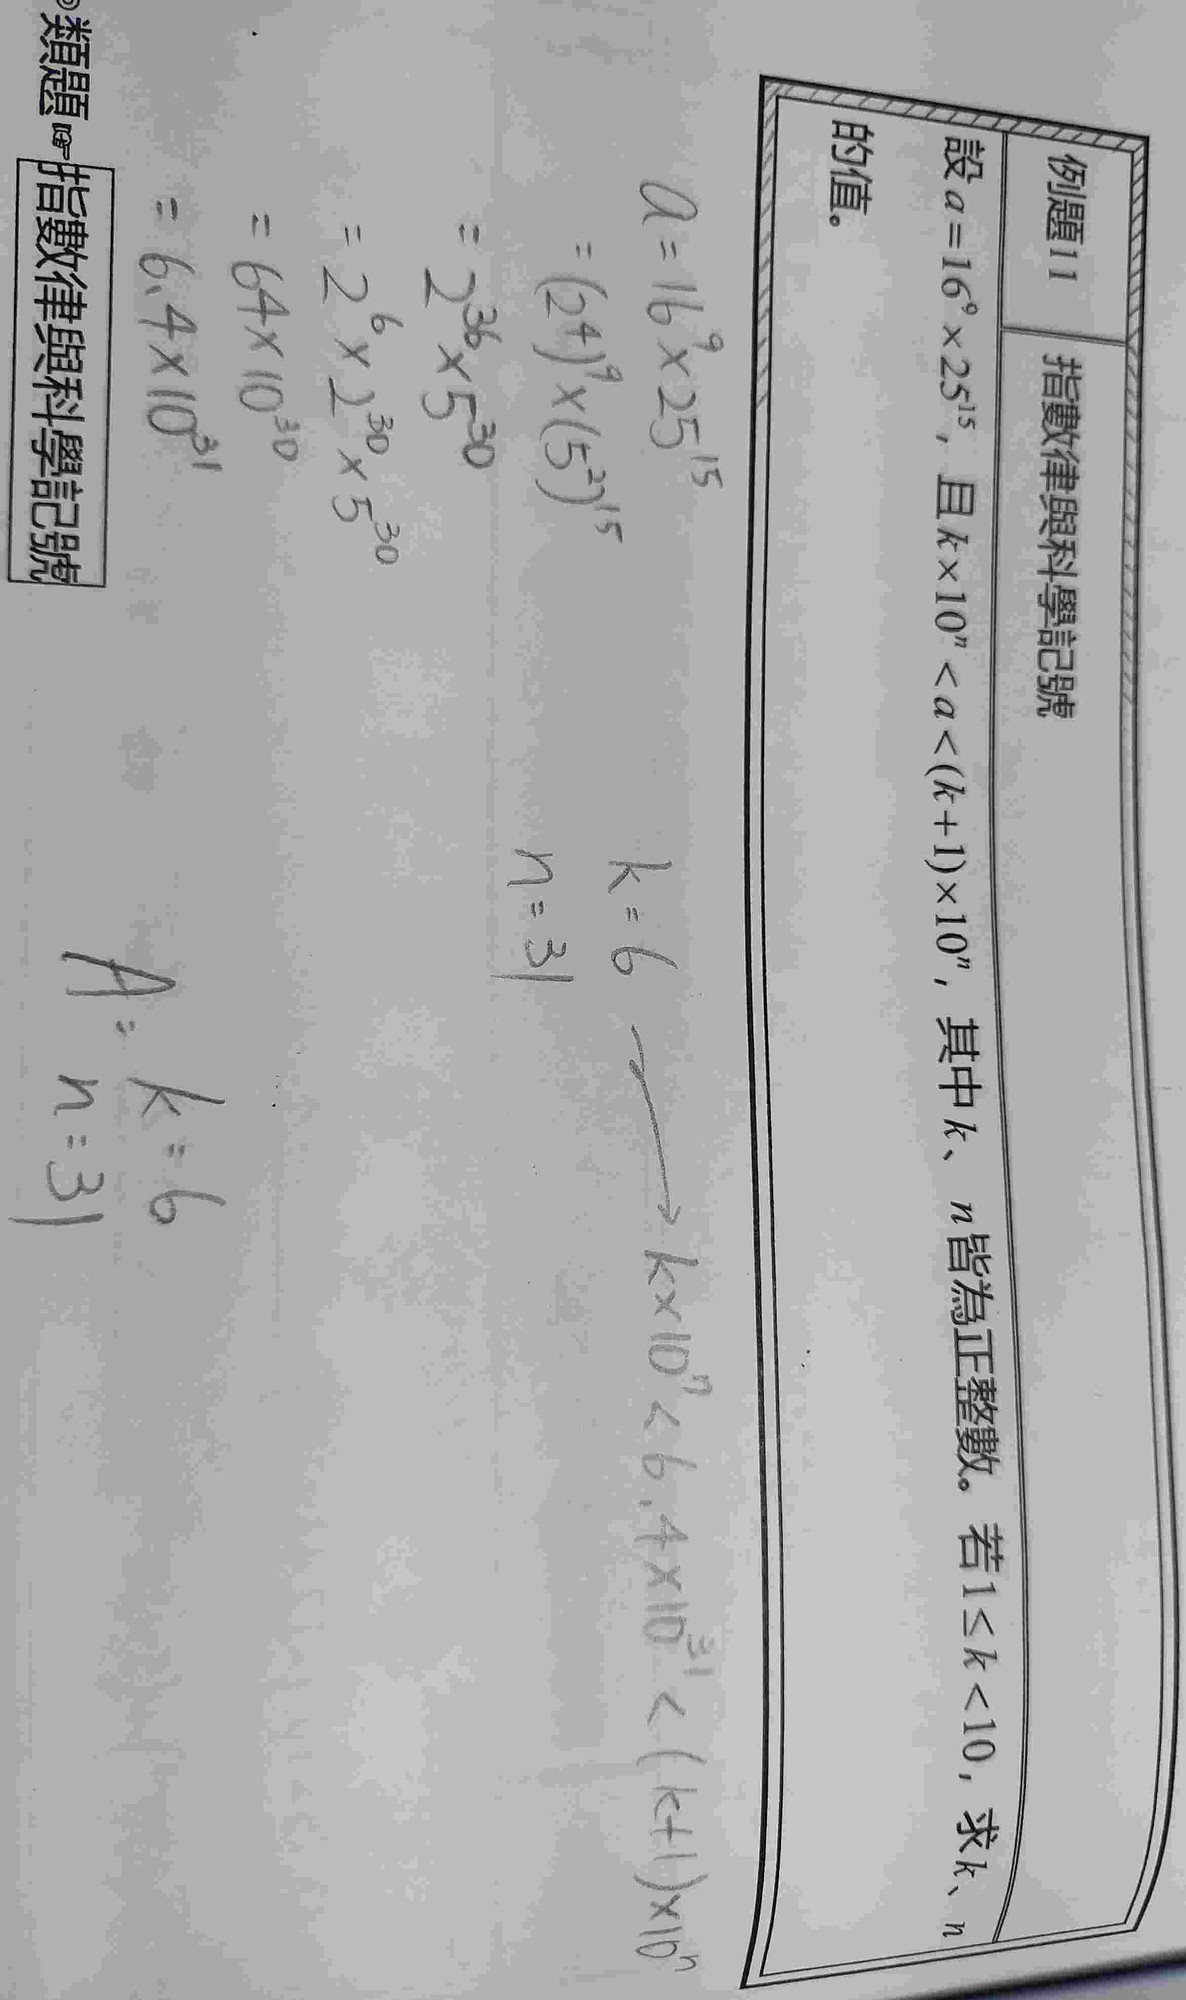 例題11 指數律與科學記號
設a=16⁹×25¹⁵，且k×10ⁿ<a<(k+1)×10ⁿ，其中k、n皆為正整數。若1≤k<10，求k、n
的值。
a=16⁹×25¹⁵
=(2⁴)⁹×(5²)¹⁵
=2³⁶×5³⁰
=2⁶×2³⁰×5³⁰
=64×10³⁰
=6.4×10³¹
k=6 → k×10ⁿ<6.4×10³¹<(k+1)×10ⁿ
n=31
A: k=6
n=31
類題☞指數律與科學記號